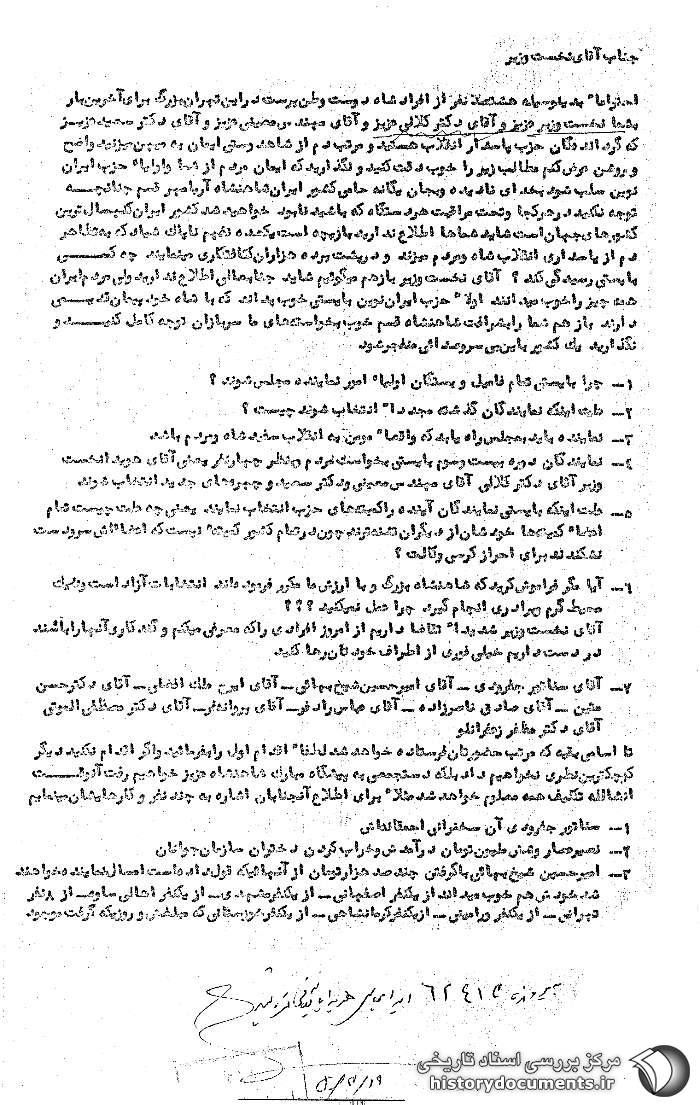 جناب آقای نخست وزیر
احتراما" بدینوسیله هشتصد نفر از افراد شاه دوست وطن پرست در این تهران بزرگ برای آخرین بار
بشما نخست وزیر عزیز و آقای دکتر کلالی عزیز و آقای مهندس معینی عزیز و آقای دکتر سعید عزیز
که گردانندگان حزب پاسدار انقلاب هستید و مرتب دم از شاهدوستی ایمان به میهن میزنید واضح
و روشن عرض کنم مطالب زیر را خوب دقت کنید و نگذارید که ایمان مردم از شما و اولیاء حزب ایران
نوین سلب شود بخدای نادیده و بجان یگانه حامی کشور ایران شاهنشاه آریامهر قسم چنانچه
توجه نکنید در هر کجا وتحت مراقبت هر دستگاه که باشید نابود خواهید شد کشور ایران کهنسال ترین
کشورهای جهان است شاید شماها اطلاع ندارید بازیچه است یکعده نفهم ناپاک شیاد که به ظاهر
دم از پاسداری انقلاب شاه و مردم میزنند و در پشت پرده هزاران کثافتکاری مینمایند چه کسی
بایستی رسیدگی کند ؟ آقای نخست وزیر بازهم میگوئیم شاید جنابعالی اطلاع ندارید ولی مردم ایران
همه چیز را خوب میدانند اولیاء حزب ایران نوین بایستی خوب بدانند که با شاه خود پیمان قدیمی
دارند باز هم شما را بشرافت شاهنشاه قسم خوب بخواسته‌های ما سربازان توجه کامل کنید و
نگذارید یک کشور باین بی سروصدائی منفجر شود.
۱ــ چرا بایستی تمام فامیل و بستگان اولیاء امور نماینده مجلس شوند ؟
۲ــ علت اینکه نمایندگان گذشته مجددا" انتخاب شوند چیست ؟
۳ــ نماینده باید بمجلس راه یابد که واقعا" مومن به انقلاب سفید شاه و مردم باشد
۴ــ نمایندگان دوره بیست وسوم بایستی بخواست مردم و بنظر چهار نفر یعنی آقای هویدا نخست
وزیر آقای دکتر کلالی آقای مهندس معینی و دکتر سعید و چهره‌های جدید انتخاب شوند
۵ــ علت اینکه بایستی نمایندگان آینده را کمیته‌های حزب انتخاب نمایند یعنی چه علت چیست تمام
اعضاء کمیته‌ها خودشان از دیگران تشنه‌ترند چون در تمام کشور کمیته نیست که اعضااش سرودست
نشکنند برای احراز کرسی وکالت ؟
۶ــ آیا مگر فراموش کردید که شاهنشاه بزرگ و با ارزش ما مکرر فرموداند انتخابات آزاد است و باید
محیط گرم وبرادری انجام گیرد چرا عمل نمیکنید ؟ ؟ ؟
آقای نخست وزیر شدیدا" تقاضا داریم از امروز افرادی را که معرفی میکنم و گندکاری آنها را باسند
در دست داریم خیلی فوری از اطراف خودتان رها کنید.
۷ــ آقای سناتور جفرودی ــ آقای امیرحسین شیخ بهائی ــ آقای ایرج ملک افضلی ــ آقای دکترحسن
متین ــ آقای صادق ناصرزاده ــ آقای عباس رادفر ــ آقای پروانه‌فر ــ آقای دکتر مصطفی الموتی
آقای دکتر مظفر زعفرانلو
تا اسامی بقیه که مرتب حضورتان فرستاده خواهد شد لطفا" اقدام اول را بفرمائید و اگر اقدام نکنید دیگر
کوچکترین نظری نخواهیم داد بلکه دستجمعی به پیشگاه مبارک شاهنشاه عزیز خواهیم رفت آنوقت
انشالله تکلیف همه معلوم خواهد شد مثلا" برای اطلاع آنجنابان اشاره به چند نفر و کارهایشان مینمایم
۱ــ سناتور جفرودی آن سخنرانی احمقانه‌اش
۲ــ نصیر عصار وشش ملیون تومان درآمدش وخراب کردن دختران سازمان جوانان
۳ــ امیرحسین شیخ بهائی باگرفتن چندصد هزارتومان از آنهائیکه قول داده است امسال نماینده خواهند
شد خودش هم خوب میداند از یکنفر اصفهانی ــ از یکنفر مشهدی ــ از یکنفر اهالی ساوه ــ از ۸ نفر
تهرانی ــ از یکنفر ورامینی ــ از یکنفر کرمانشاهی ــ از یکنفر خوزستانی که مبلغش و روزیکه گرفت موجود
۶۲۴۱۴
۵۰/۳/۱۹
مرکز بررسی اسناد تاریخی
historydocuments.ir